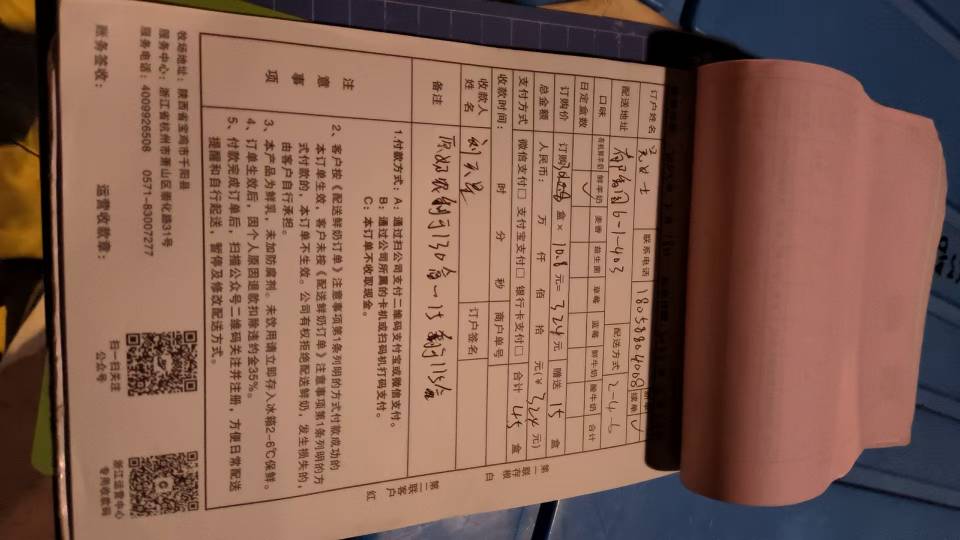 订户姓名 女士 联系电话 18058804008 续单 ✓
配送地址 6-1-403 配送方式 2-4-6
口味 有机鲜羊奶 鲜羊奶 麦香 益生菌 草莓 蓝莓 鲜牛奶 酸牛奶 合计
日定盒数 ✓
订购价 订购 盒× 10.8 元= 324 元 赠送 15 盒
总金额 人民币: 万 仟 佰 拾 元(¥ 324 元)
支付方式 微信支付□ 支付宝支付□ 银行卡支付□ 合计 45 盒
收款时间: 时 分 秒 商户单号
收款人姓名 订户签名
备注 130盒-15 115盒
注意事项
1.付款方式: A: 通过扫公司支付二维码支付宝或微信支付。
B: 通过公司所属的卡机或扫码机打码支付。
C: 本订单不收取现金。
2、客户按《配送鲜奶订单》注意事项第1条列明的方式付款成功的
本订单生效, 客户未按《配送鲜奶订单》注意事项第1条列明的方
式付款的, 本订单不生效。公司有权拒绝配送鲜奶, 发生损失的,
由客户自行承担。
3、本产品为鲜乳, 未加防腐剂。未饮用请立即存入冰箱2-6℃保鲜。
4、订单生效后, 因个人原因退款扣除违约金35%。
5、付款完成订单后, 扫描公众号二维码关注并注册, 方便日常配送
提醒和自行起送, 暂停及修改配送方式。
第一联 存根 白
第二联 客户 红
牧场地址: 陕西省宝鸡市千阳县
服务中心: 浙江省杭州市萧山区崇化路31号
服务电话: 4009926508 0571-83007277
账务签收: 运营收款章:
扫一扫关注
公众号
浙江运营中心
专用收款码